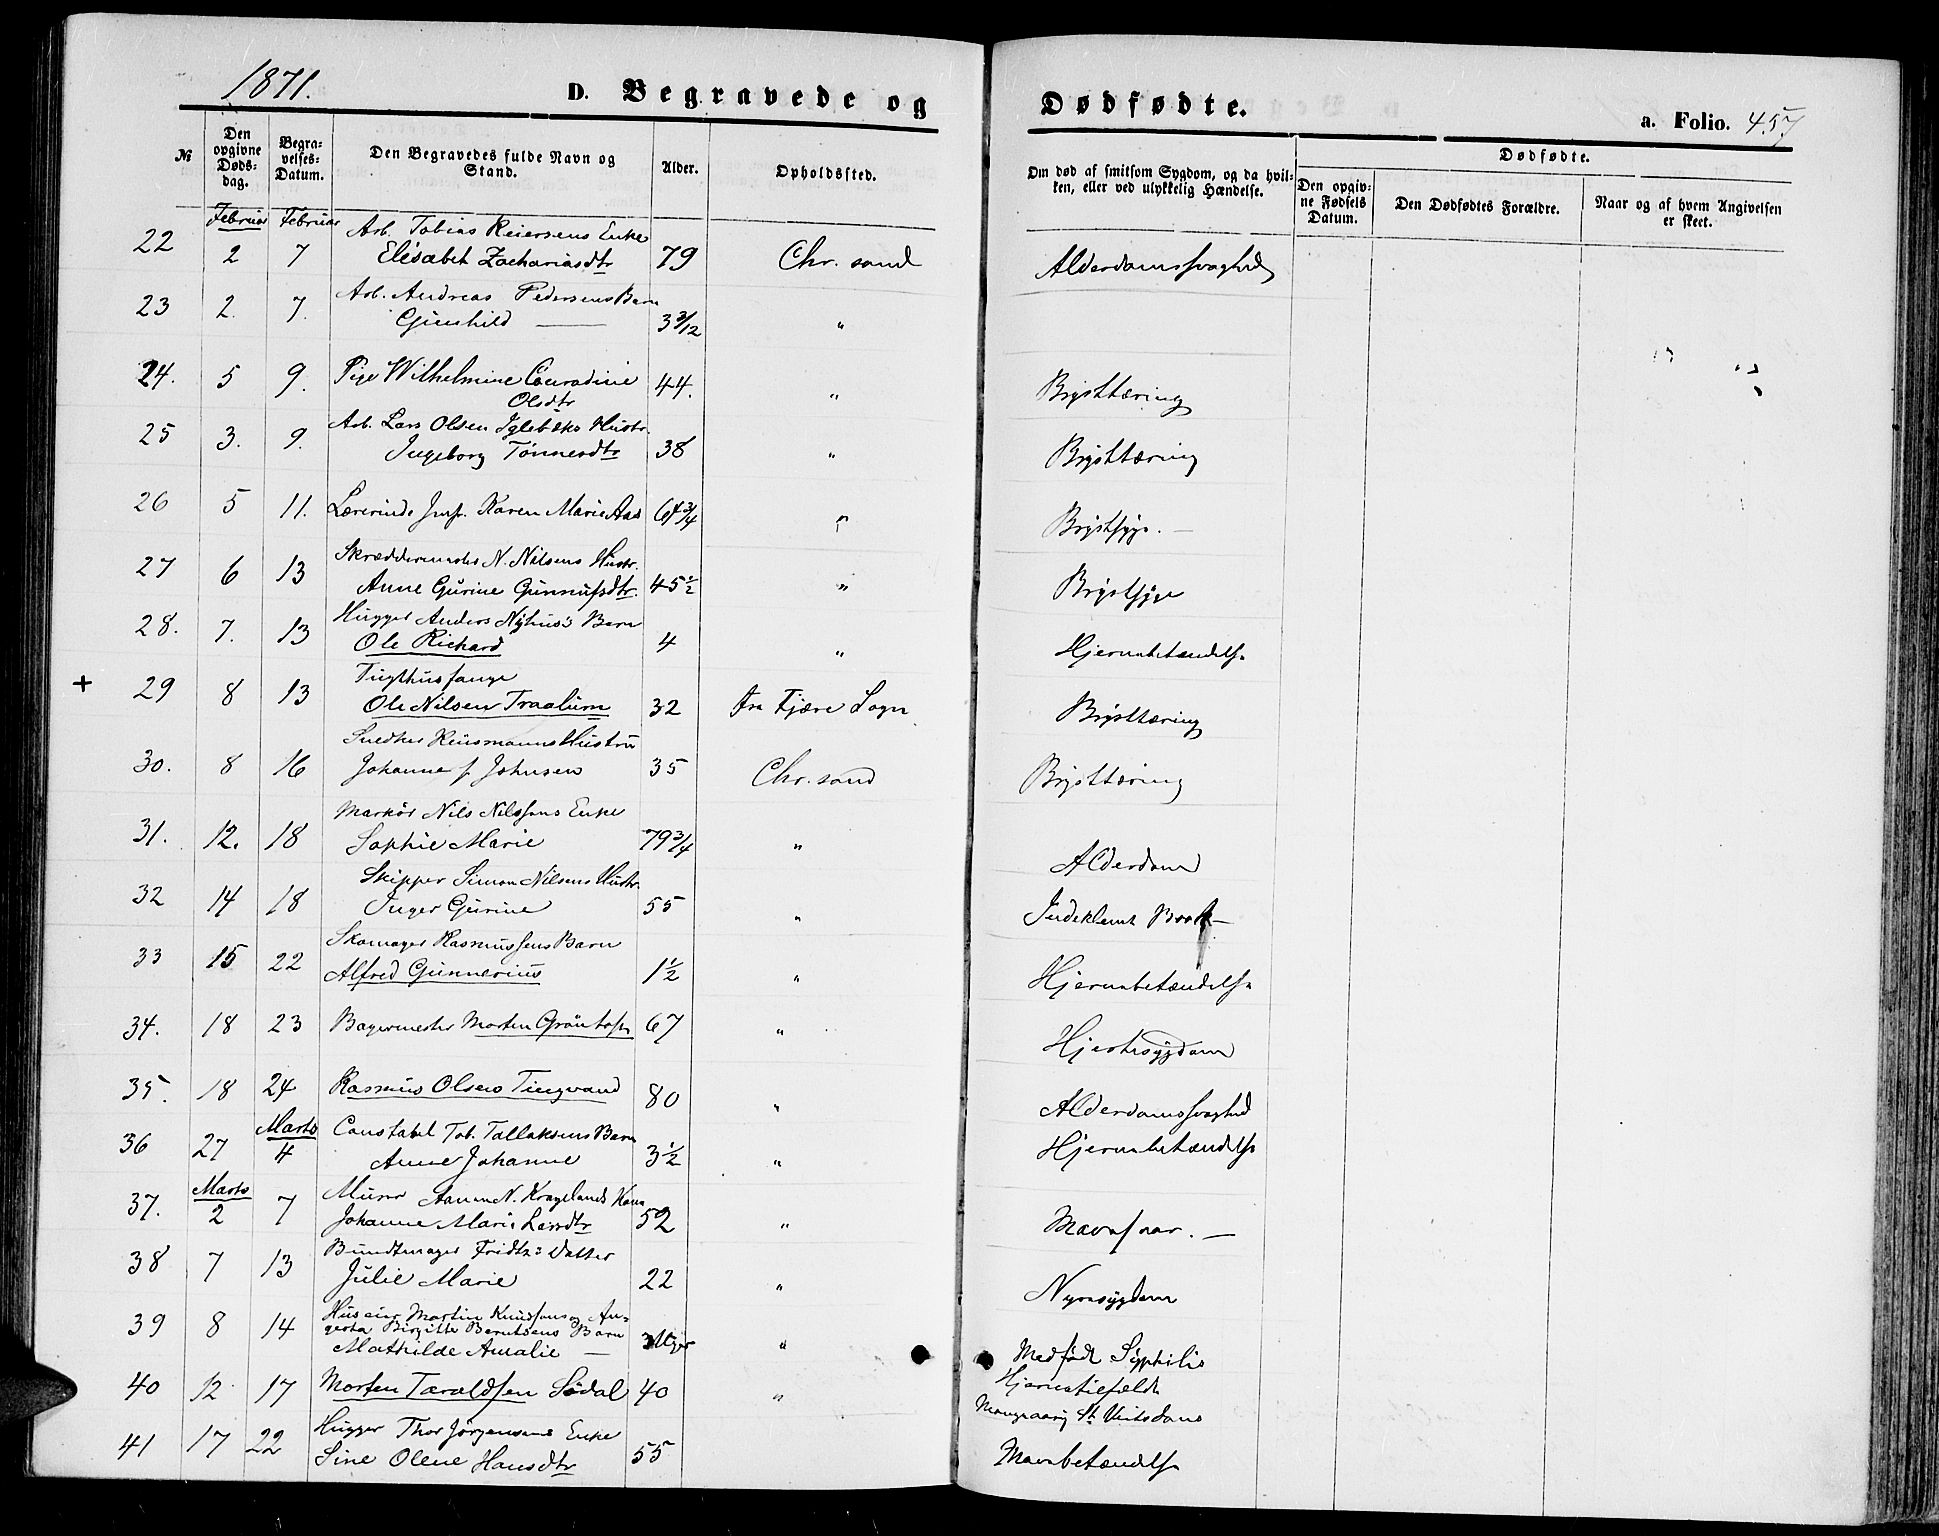 1871.
D. Begravede og Dødfødte.
a. Folio. 457
№
Den opgivne Døds-dag.
Begra-velses-Datum.
Den Begravedes fulde Navn og Stand.
Alder.
Opholdssted.
Om død af smitsom Sygdom, og da hvil-ken, eller ved ulykkelig Hændelse.
Dødfødte.
Den opgiv-ne Fødsels Datum.
Den Dødfødtes Forældre.
Naar og af hvem Angivelsen er skeet.
Februar Februar
22 2 7 Arb. Tobias Reiersens Enke
Elisabet Zachariasdtr 79 Chr. sand Alderdomssvaghed
23 2. 7. Arb. Andreas Pedersens Barn
Gunhild — 3 3/12 "
24. 5 9. Pige Wilhelmine Conradine
Olsdtr 44. " Brysttæring
25 3. 9. Arb. Lars Olsen Iglebæks Hustr.
Ingeborg Tønnesdtr 38 " Brysttæring
26 5 11. Lærerinde Jmf. Karen Marie Aas 64 3/4 " Brystsyge. —
27 6 13 Skræddermester N. Nilsens Hustr.
Anne Gurine Gunnufsdtr. 45 1/2 " Brystsyge
28. 7. 13 Hugger Anders Nyhus's Barn
Ole Richard 4 " Hjernebetændelse
+ 29 8 13 Tugthusfange
Ole Nilsen Traalum 32 fra Fjære Sogn Brysttæring
30. 8 16 Snedker Reusmanns Hustru
Johanne f. Johnsen 35 Chr. sand Brysttæring
31. 12. 18 Markør Nils Nilssens Enke
Sophie Marie 79 3/4 " Alderdom
32 14 18 Skipper Simon Nilsens Hustr.
Inger Gurine 55 " Indeklemt Brok —
33 15 22 Skomager Rasmussens Barn
Alfred Gunnerius 1 1/2 " Hjernebetændelse
34. 18 23 Bagermester Morten 67 " Hjertesygdom
35. 18 24 Rasmus Olsens Tingvand 80 " Alderdomssvaghed
36 27 Marts 4 Constabel Tob. Tallaksens Barn
Anne Johanne 3 1/2 " Hjernebetændelse
37. Marts 2 7 Murer N. Kragelands Kone
Johanne Marie Larsdtr 52 " Mavesaar. —
38 7 13 Bundtmager Fridtz's Datter
Julie Marie 22 " Nyresygdom
39 8 14 Huseier Martin Knudsens og An-
gertha Birgitte Berntsens Barn
Mathilde Amalie — 3 Uger " Medfødt Syphilis
40 12 17 Morten Taraldsen Sødal 40 " Hjernetilfælde
Mangeaarig St. Veitsdans
41 17 22 Hugger Thor Jørgensens Enke
Sine Olene Hansdtr 55 Mavebetændelse